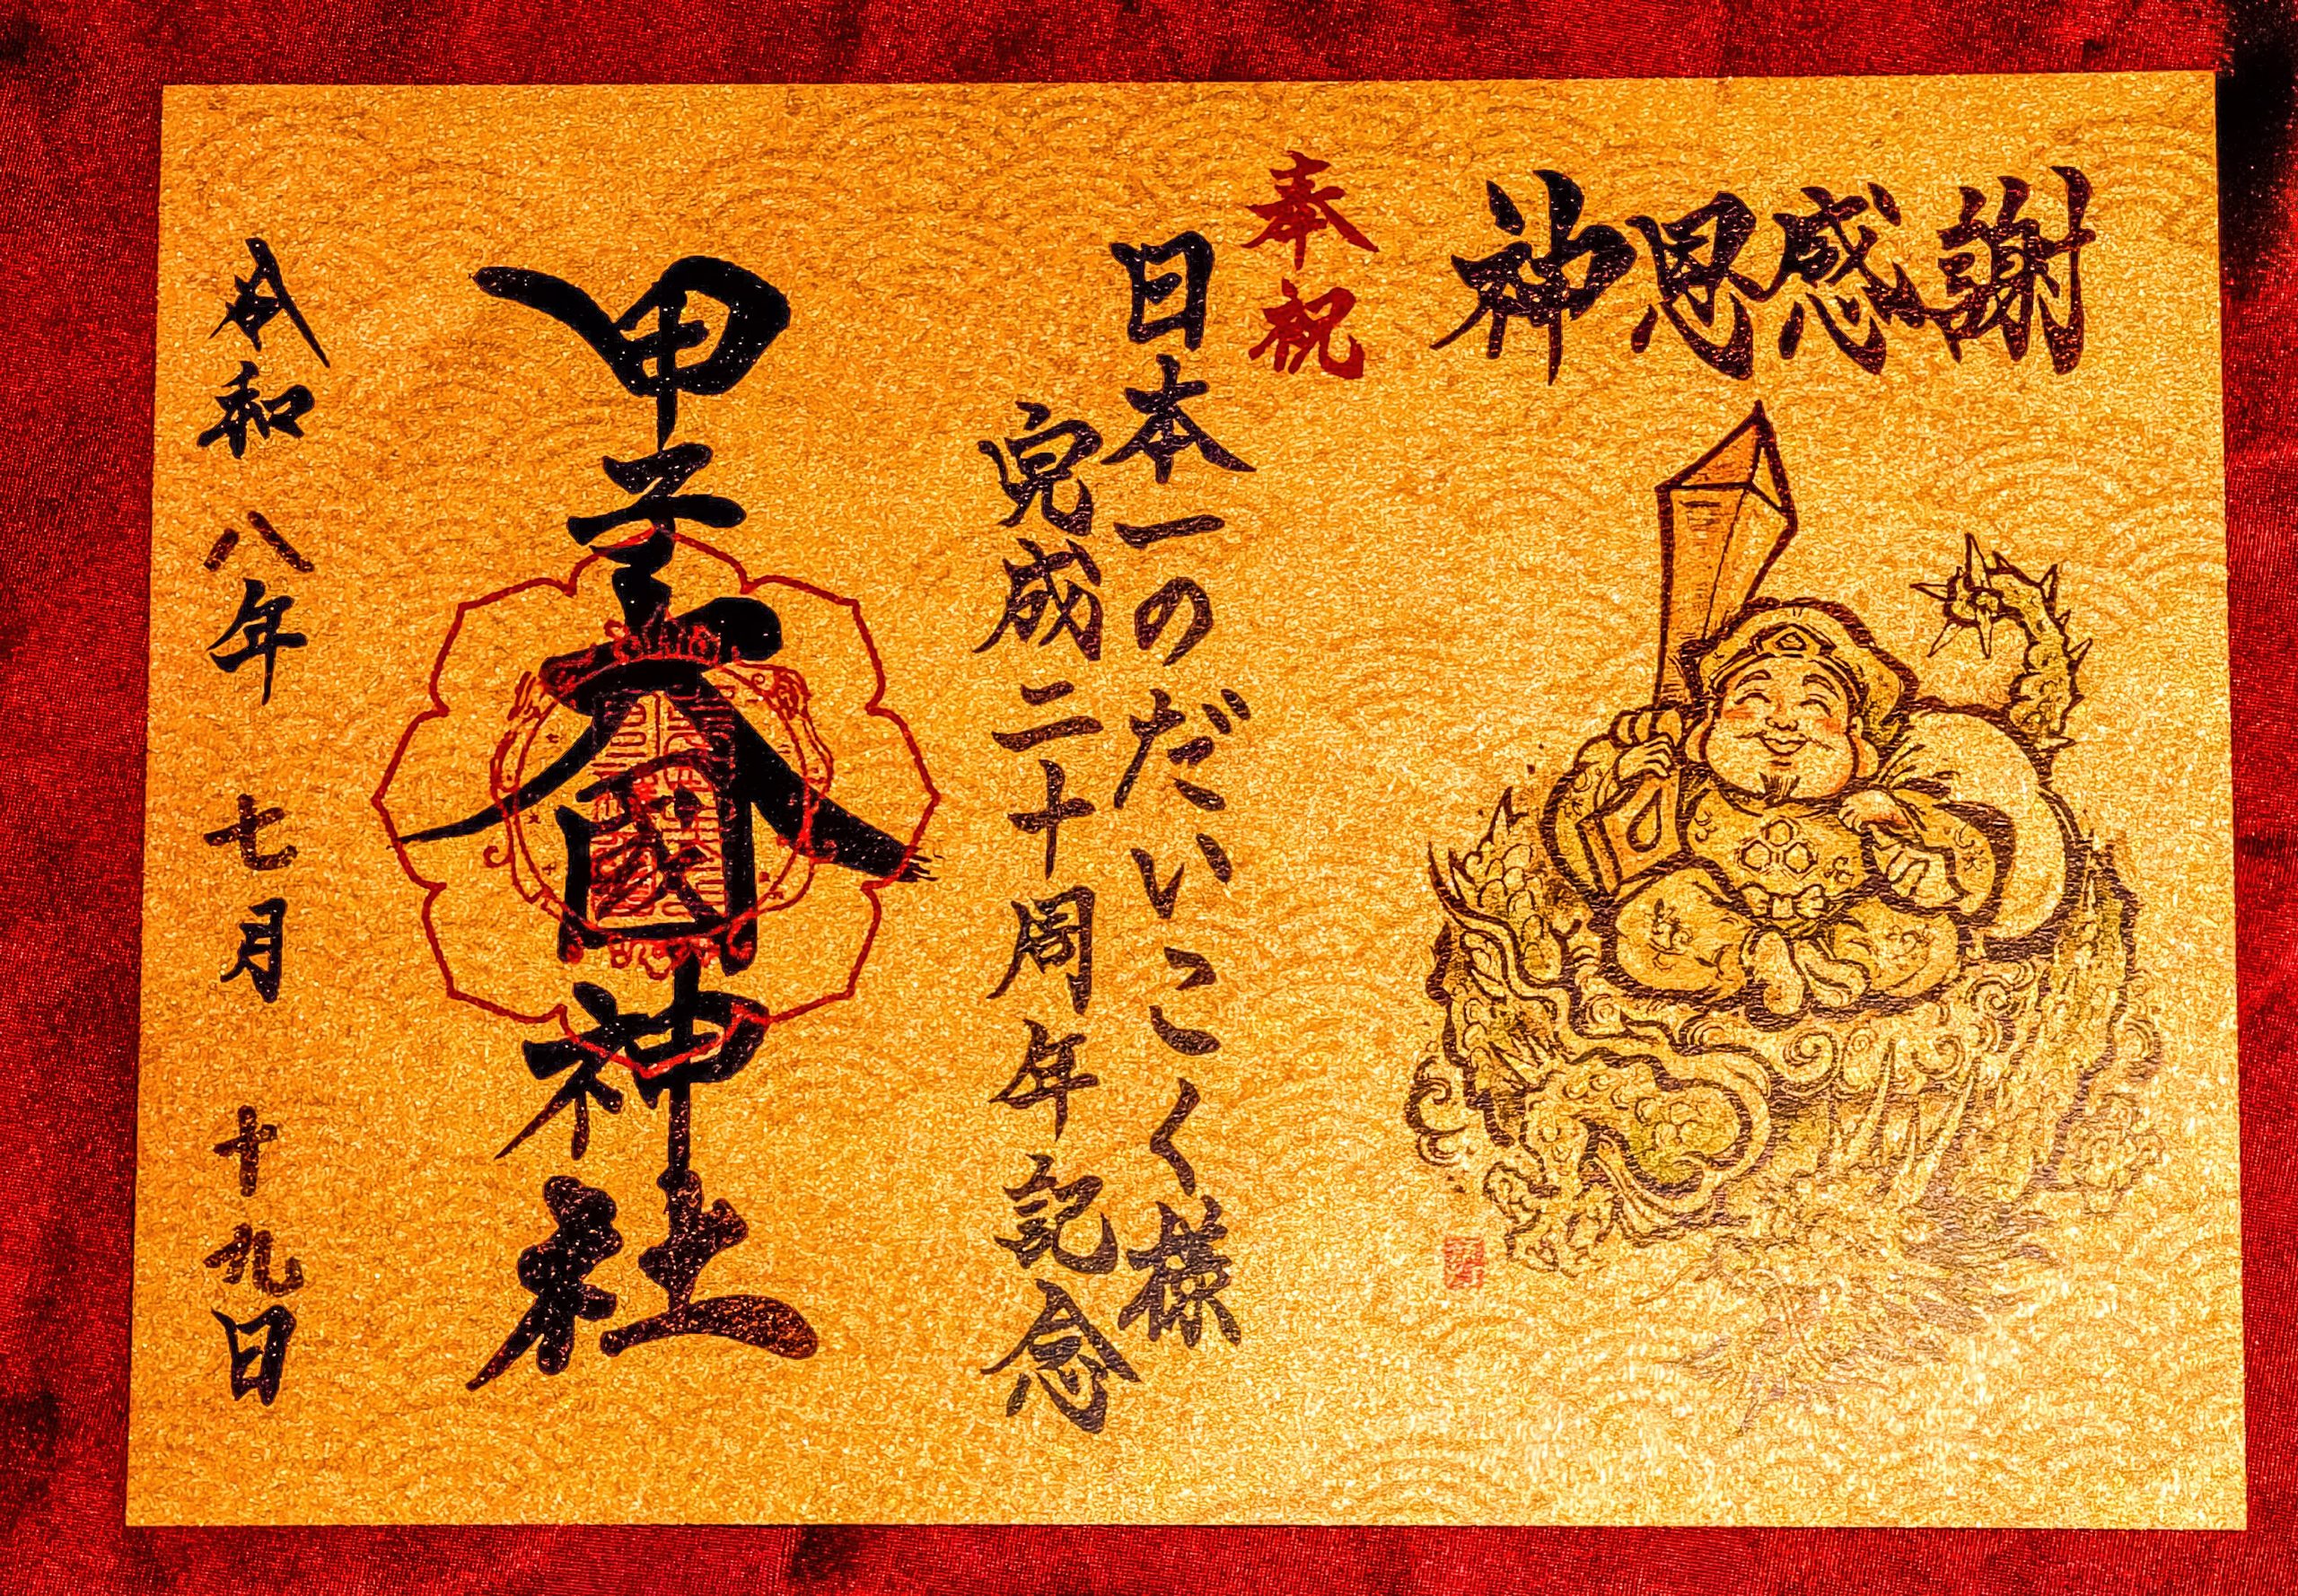 神恩感謝
奉祝
日本一のだいこく様
完成二十周年記念
甲子大國神社
令和八年七月十九日